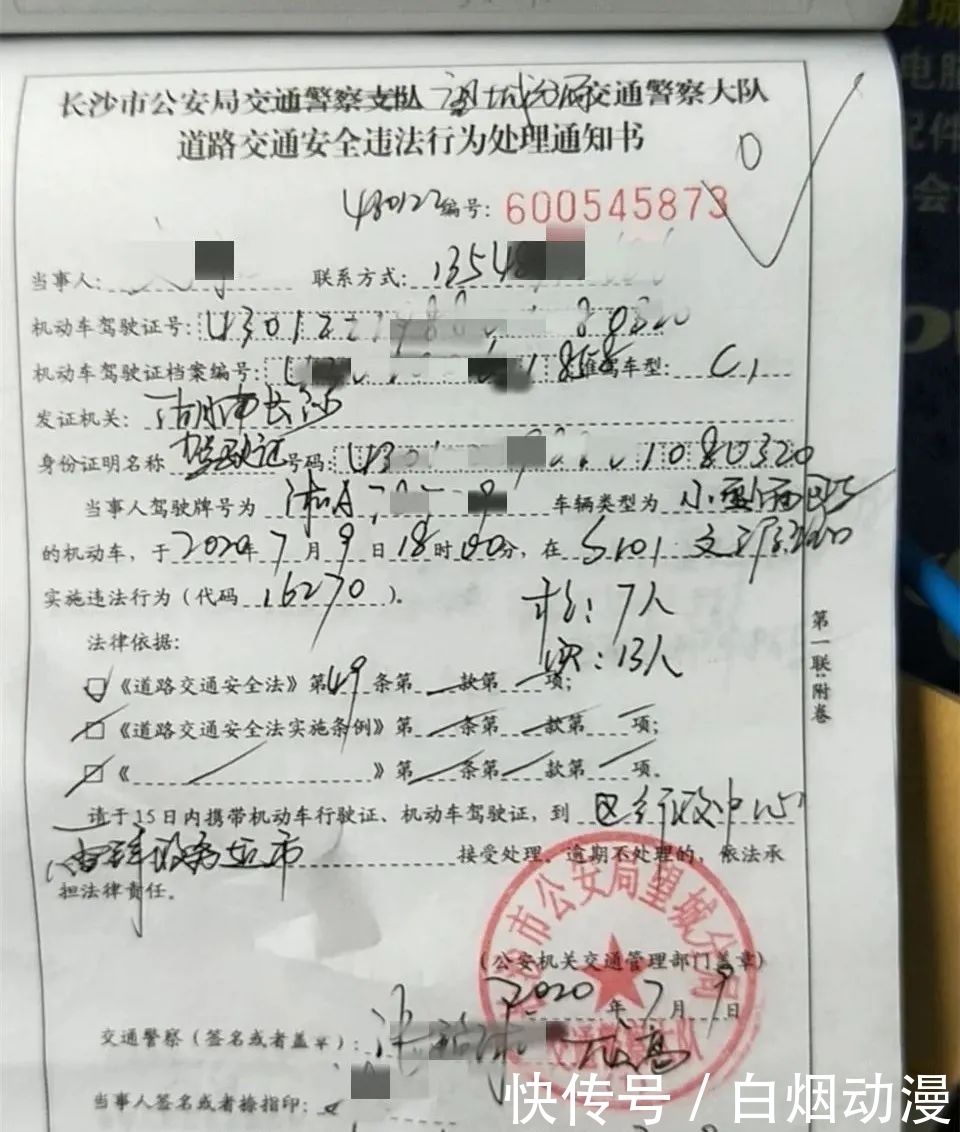 长沙市公安局交通警察支队望城分局交通警察大队
道路交通安全违法行为处理通知书
430122编号:600545873
当事人: 联系方式:13548
机动车驾驶证号:
机动车驾驶证档案编号: 1858准驾车型:C1
发证机关:湖南长沙
身份证明名称 驾驶证号码: 1080320
当事人驾驶牌号为湘A 车辆类型为小型面包
的机动车,于2020年7月9日18时00分,在S101
实施违法行为(代码16270)。
核:7人
实:13人
法律依据:
《道路交通安全法》第49条第 款第 项;
《道路交通安全法实施条例》第 条第 款第 项;
《 》第 条第 款第 项。
请于15日内携带机动车行驶证、机动车驾驶证,到区行政中心
接受处理。逾期不处理的,依法承
担法律责任。
长沙市公安局望城分局
交通警察大队
(公安机关交通管理部门盖章)
2020年7月9日
交通警察(签名或者盖章):
当事人签名或者捺指印:
第一联:附卷
电脑
配件
会
快传号/白烟动漫